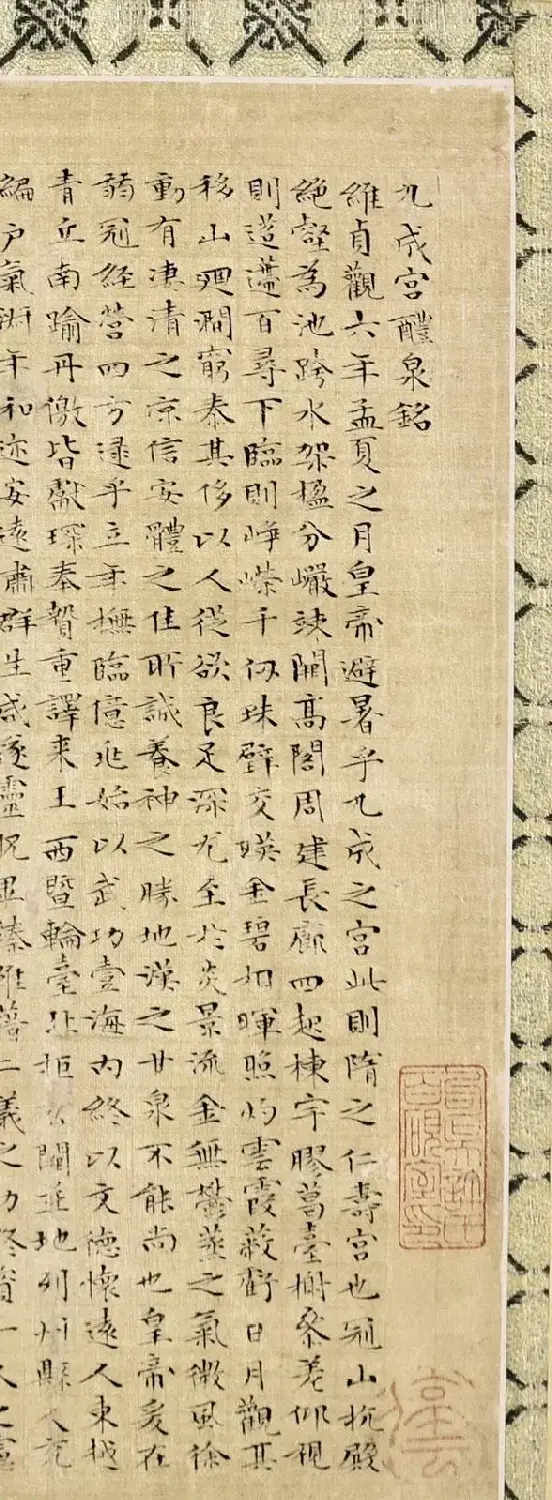 九成宮醴泉銘
維貞觀六年孟夏之月皇帝避暑乎九成之宮此則隋之仁壽宮也冠山抗殿
絕壑為池跨水架楹分巖竦闕高閣周建長廊四起棟宇膠葛臺榭參差仰視
則迢遰百尋下臨則崢嶸千仞珠壁交暎金碧相暉照灼雲霞蔽虧日月觀其
移山迴澗窮泰其侈以人從欲良足深尤至於炎景流金無鬱蒸之氣微風徐
動有淒清之涼信安體之佳所誠養神之勝地漢之甘泉不能尚也皇帝爰在
弱冠經營四方逮乎立年撫臨億兆始以武功壹海內終以文德懷遠人東越
青丘南踰丹儌皆獻琛奉贄重譯来王西暨輪臺北拒玄闕並地列州縣人充
編戶氣淑年和迩安遠肅群生咸遂靈貺畢臻雖藉二儀之功終資一人之慮